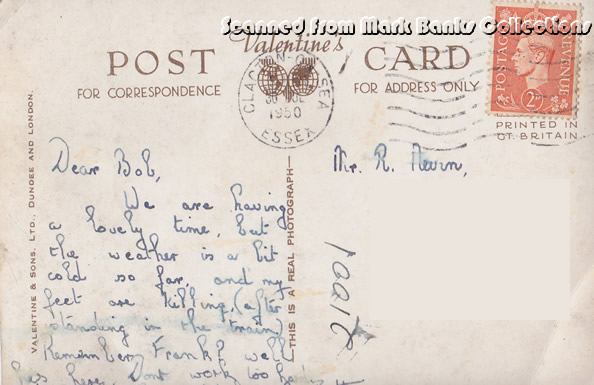 Scanned from Mark Banks Collections
Valentine's
POST CARD
FOR CORRESPONDENCE
FOR ADDRESS ONLY
CLACTON-ON-SEA
1950
ESSEX
POSTAGE
REVENUE
2D
PRINTED IN
GT. BRITAIN
VALENTINE & SONS, LTD., DUNDEE AND LONDON.
THIS IS A REAL PHOTOGRAPH
Dear Bob,
We are having
a lovely time, but
the weather is a bit
cold so far, and my
feet are killing, (after
standing in the train)
Remember Frank?
has here, Dont work too
Mr. R. Nevin,